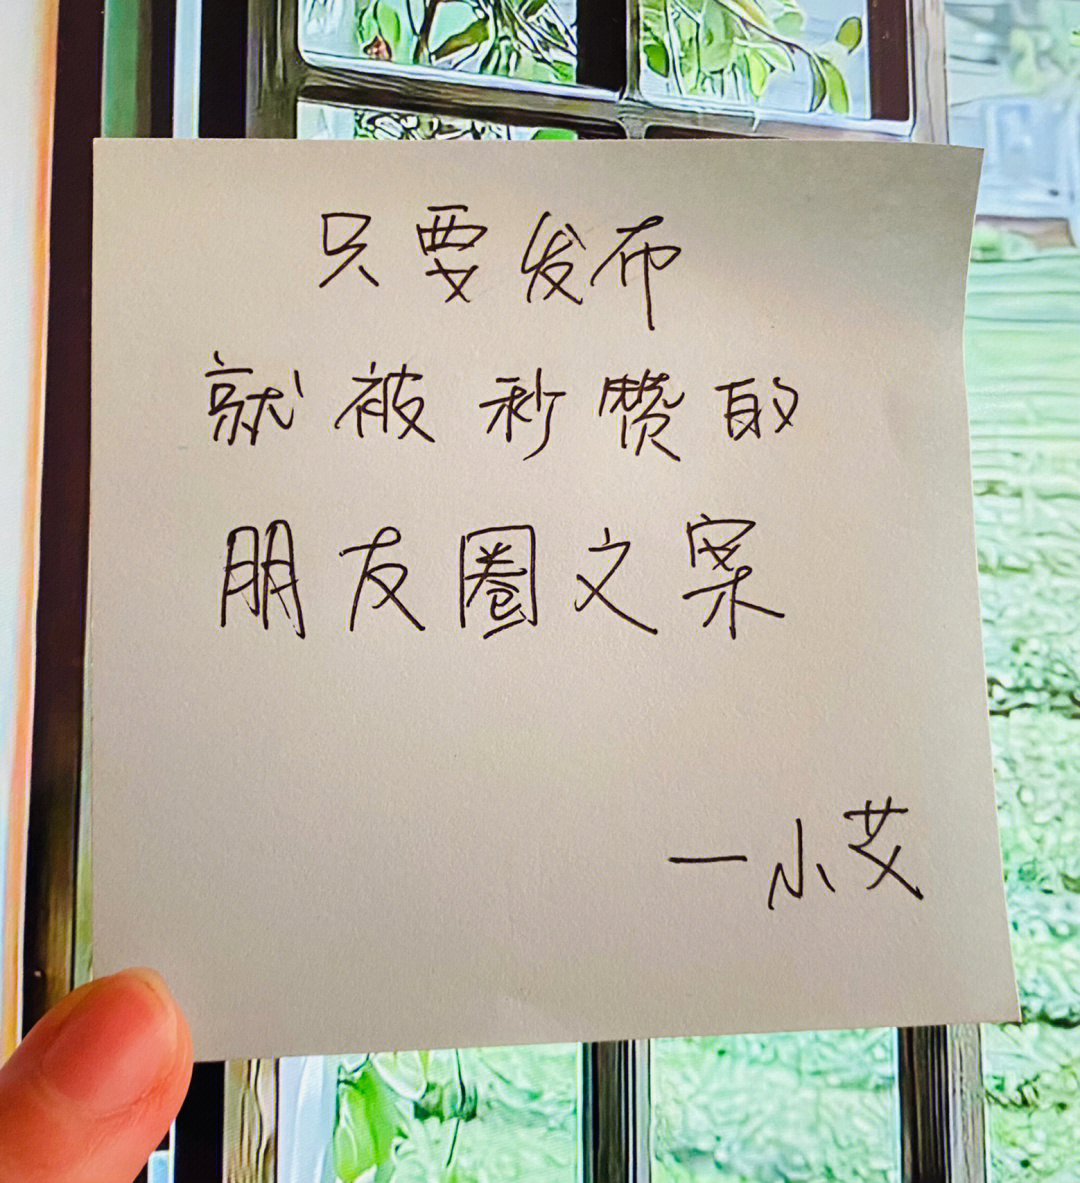 只要发布
就被秒赞的
朋友圈文案
一小艾